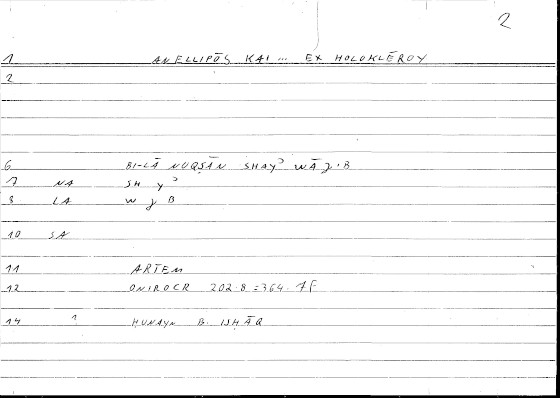 2
1 ANELLIPŌS KAI ... EX HOLOKLĒROY
2
6 BI-LĀ NUQṢĀN SHAYʾ WĀJIB
7 NA SH Yʾ
8 LA W J B
10 SA
11 ARTEM
12 ONIROCR 202.8 = 364. 7F
14 1 ḤUNAYN B. ISḤĀQ